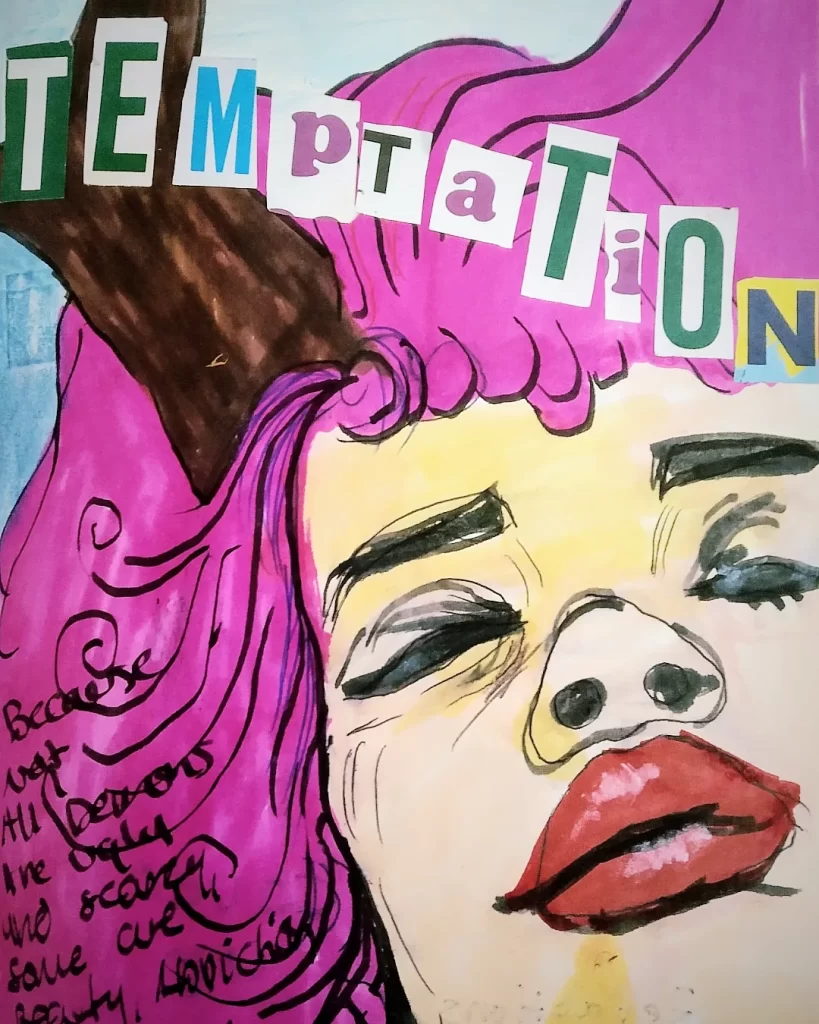 TEMpTaTiON
Because
not
All Demons
Are Ugly
And scarey
some are
Beauty,